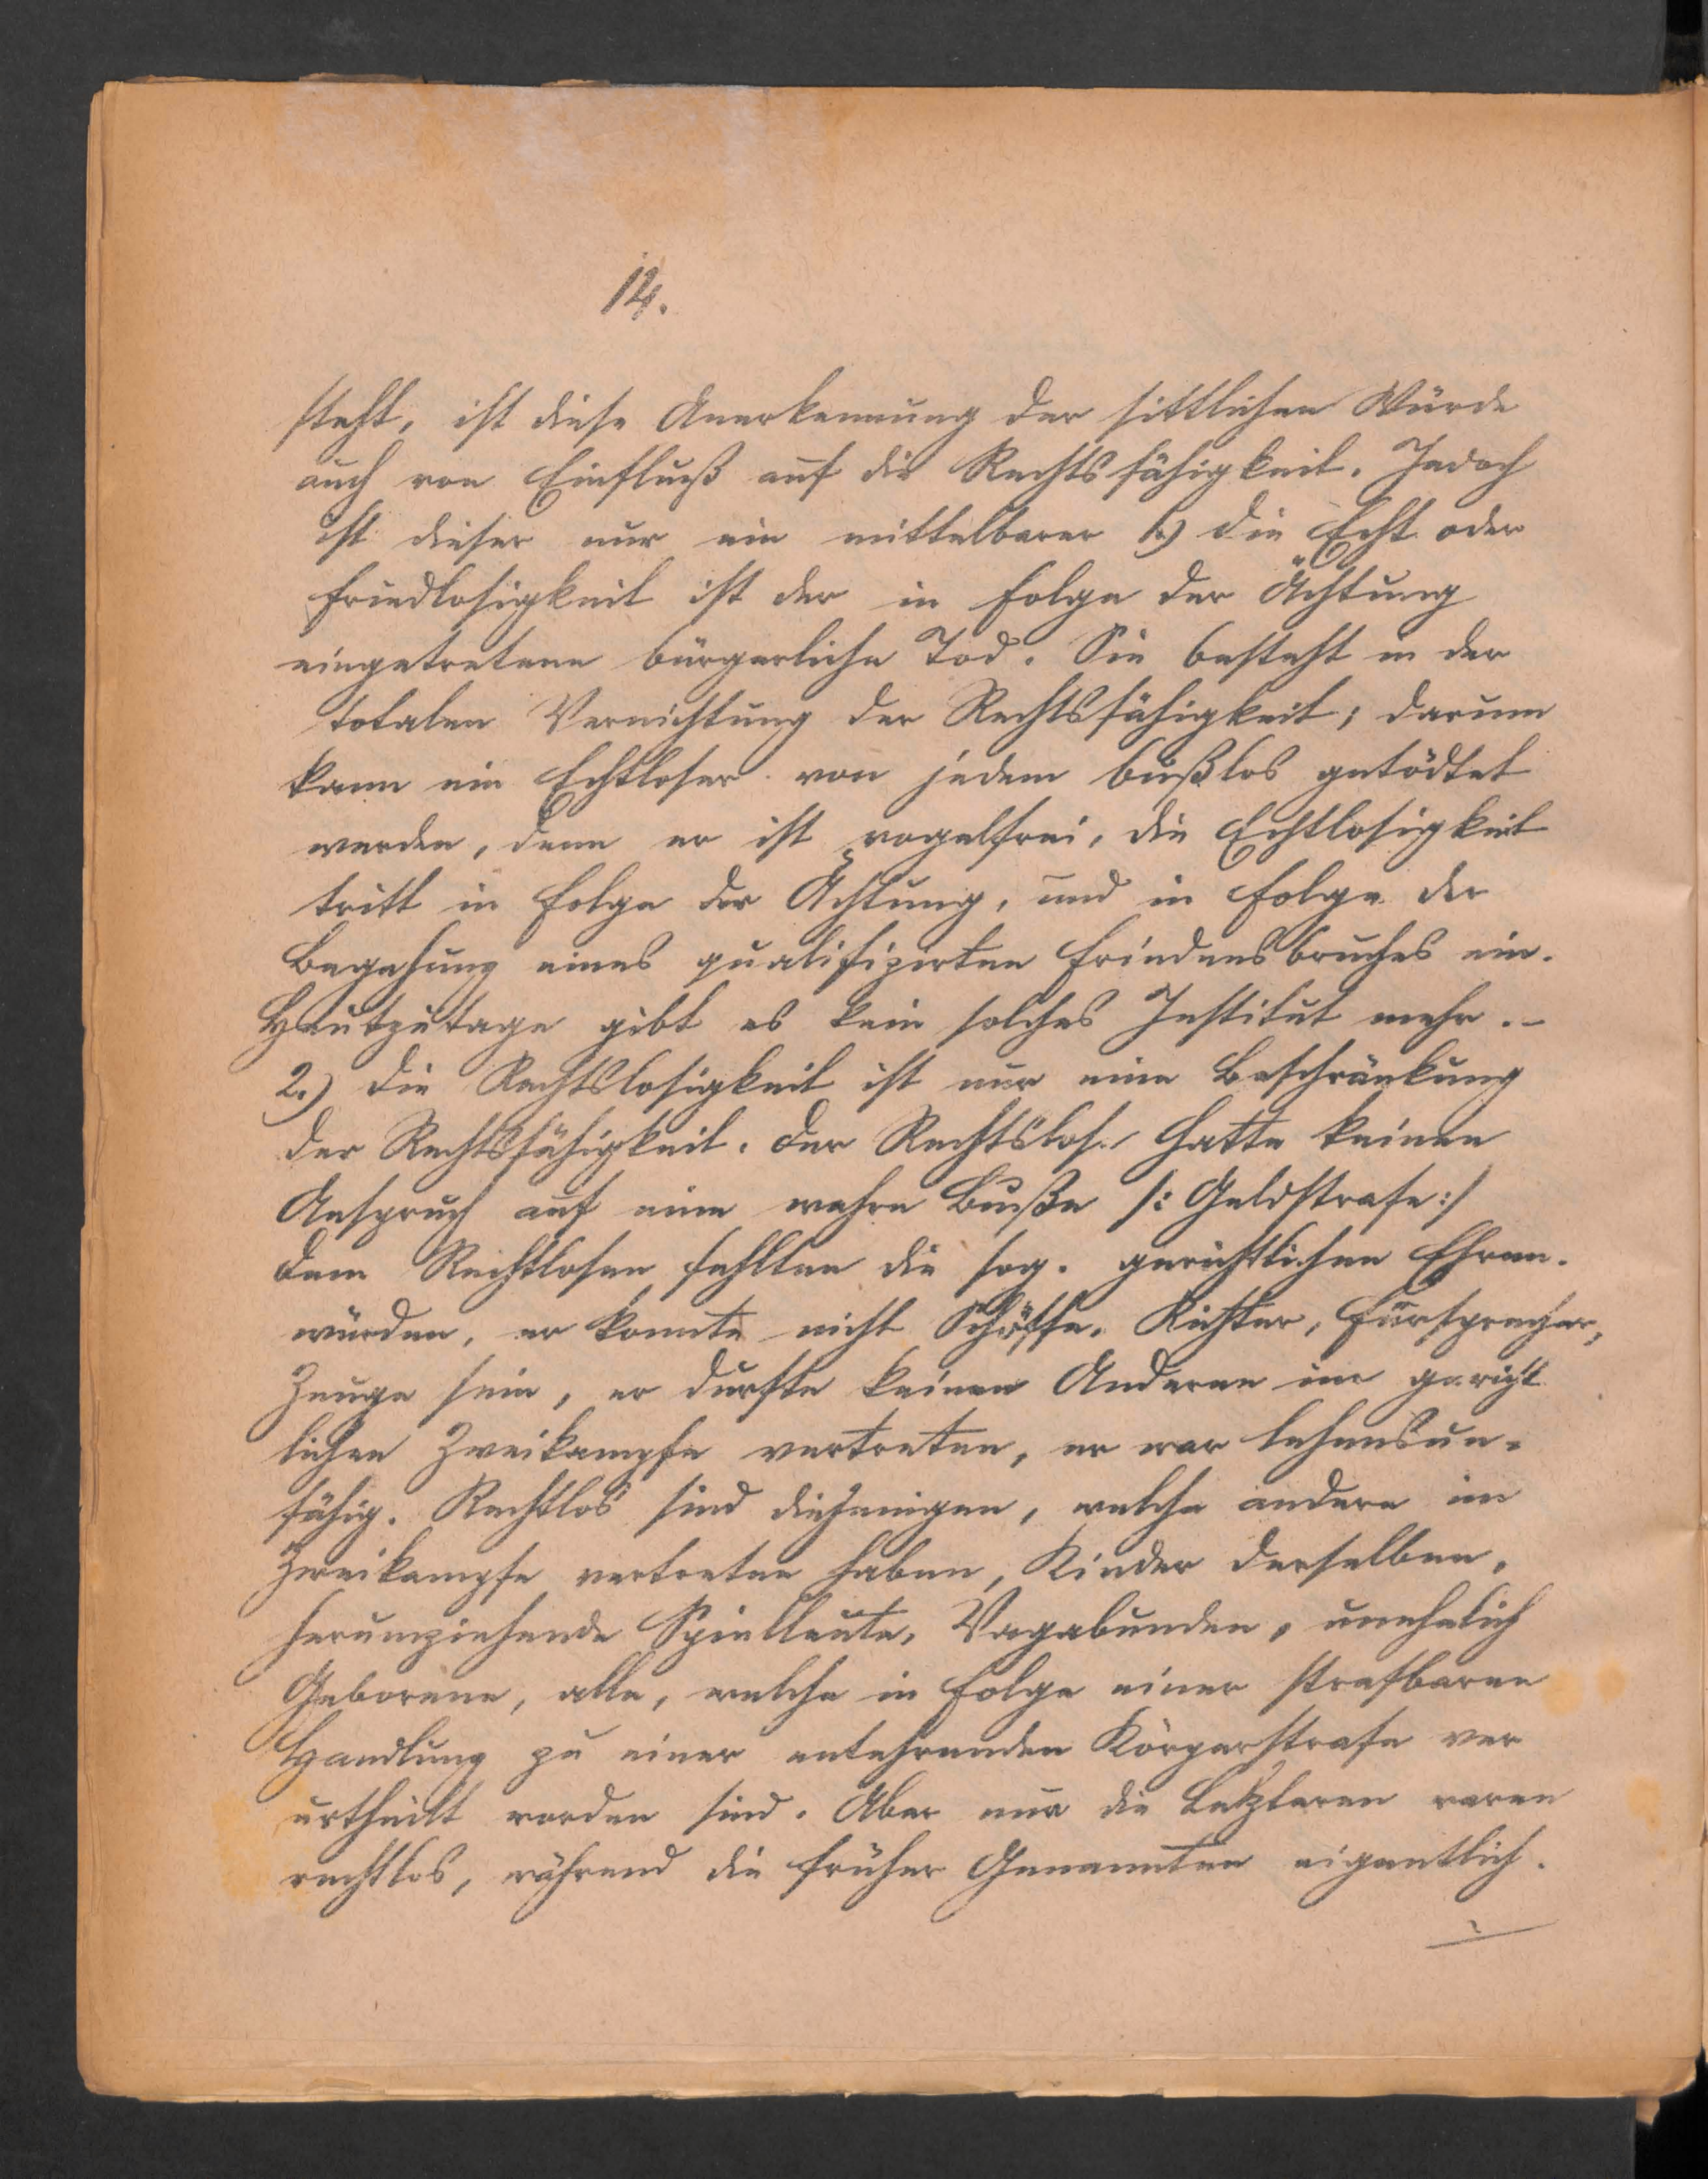 14.
steht, ist diese Anerkennung der sittlichen Würde
auch von Einfluß auf die Rechtsfähigkeit. Jedoch
ist dieser nur ein mittelbarer 1.) die Echt oder
Friedlosigkeit ist der in Folge der Ächtung
eingetretene bürgerliche Tod. Sie besteht in der
totalen Vernichtung der Rechtsfähigkeit; darum
kann ein Echtloser von jedem bußlos getödtet
werden, denn er ist vogelfrei, die Echtlosigkeit
tritt in Folge der Ächtung, und in Folge der
Begehung eines qualifizirten Friedensbruches ein.
Heutzutage gibt es kein solches Institut mehr. -
2.) die Rechtslosigkeit ist nur eine Beschränkung
der Rechtsfähigkeit. der Rechtslos. hatte keinen
Anspruch auf eine wahre Buße /: Geldstrafe :/
dem Rechtlosen fehlten die sog. gerichtlichen Ehren-
würden, er konnte nicht Schöffe, Richter, Fürsprecher,
Zeuge sein, er durfte keinen Anderen im gericht
lichen Zweikampfe vertreten, er war lehensun-
fähig. Rechtlos sind diejenigen, welche andere im
Zweikampfe vertreten haben, Kinder derselben,
herumziehende Spielleute, Vagabunden, unehelich
Geborene, alle, welche in Folge einer strafbaren
Handlung zu einer entehrenden Körperstrafe ver
urtheilt worden sind. Aber nur die Letzteren waren
rechtlos, während die früher Genannten eigentlich.